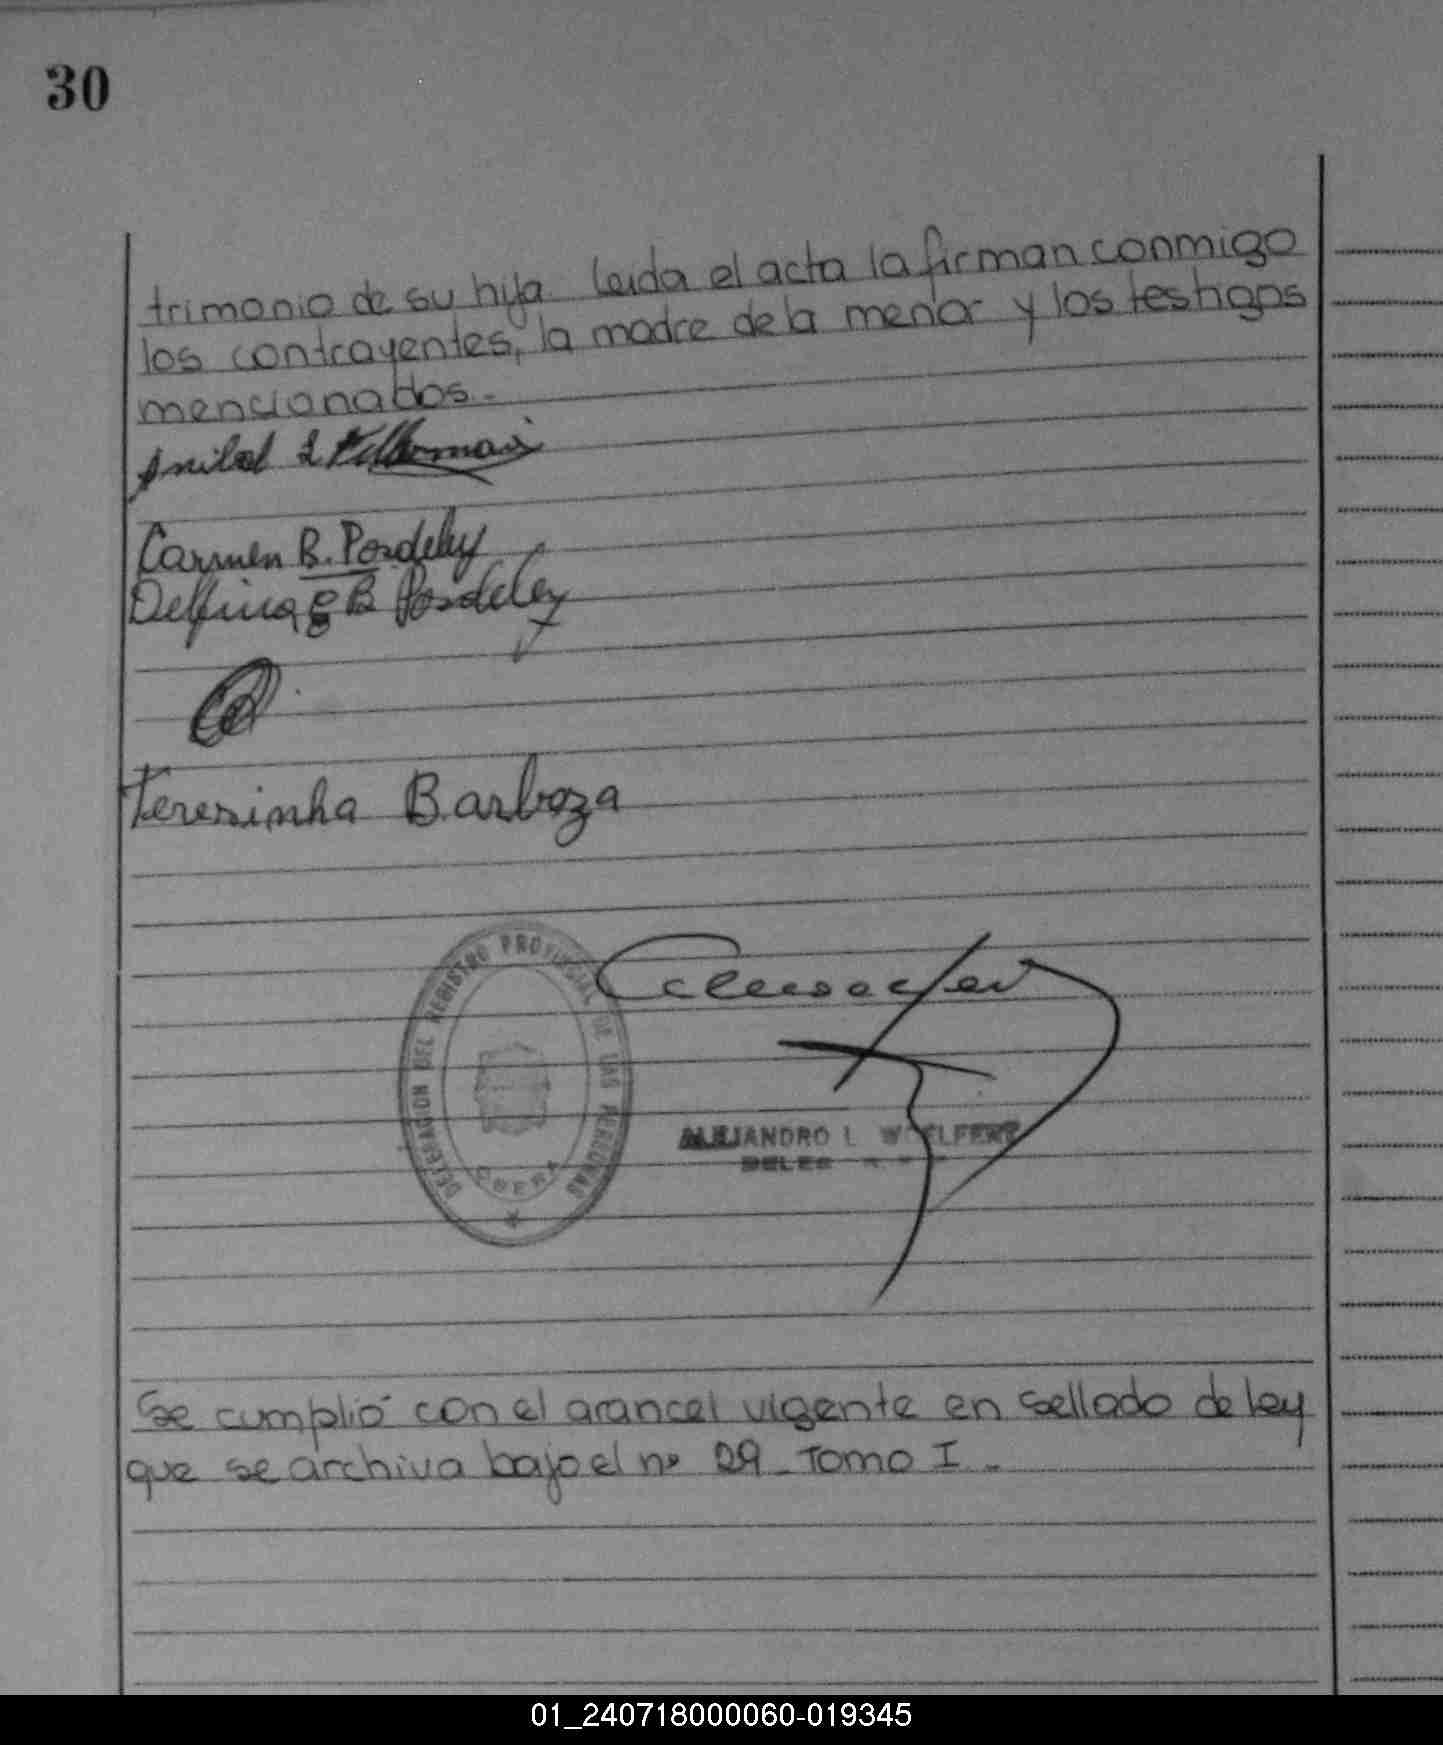 30
trimonio de su hija. Leida el acta la firman conmigo
los contrayentes, la madre de la menor y los testigos
mencionados.-
Anibal
Carmen B. Pordeley
Delfina B Pordeley
Terezinha Barboza
DELEGACION DEL REGISTRO PROVINCIAL DE LAS PERSONAS
OBERA
ALEJANDRO L WOELFERT
Se cumplió con el arancel vigente en sellado de ley
que se archiva bajo el nº 29_ Tomo I.-
01_240718000060-019345